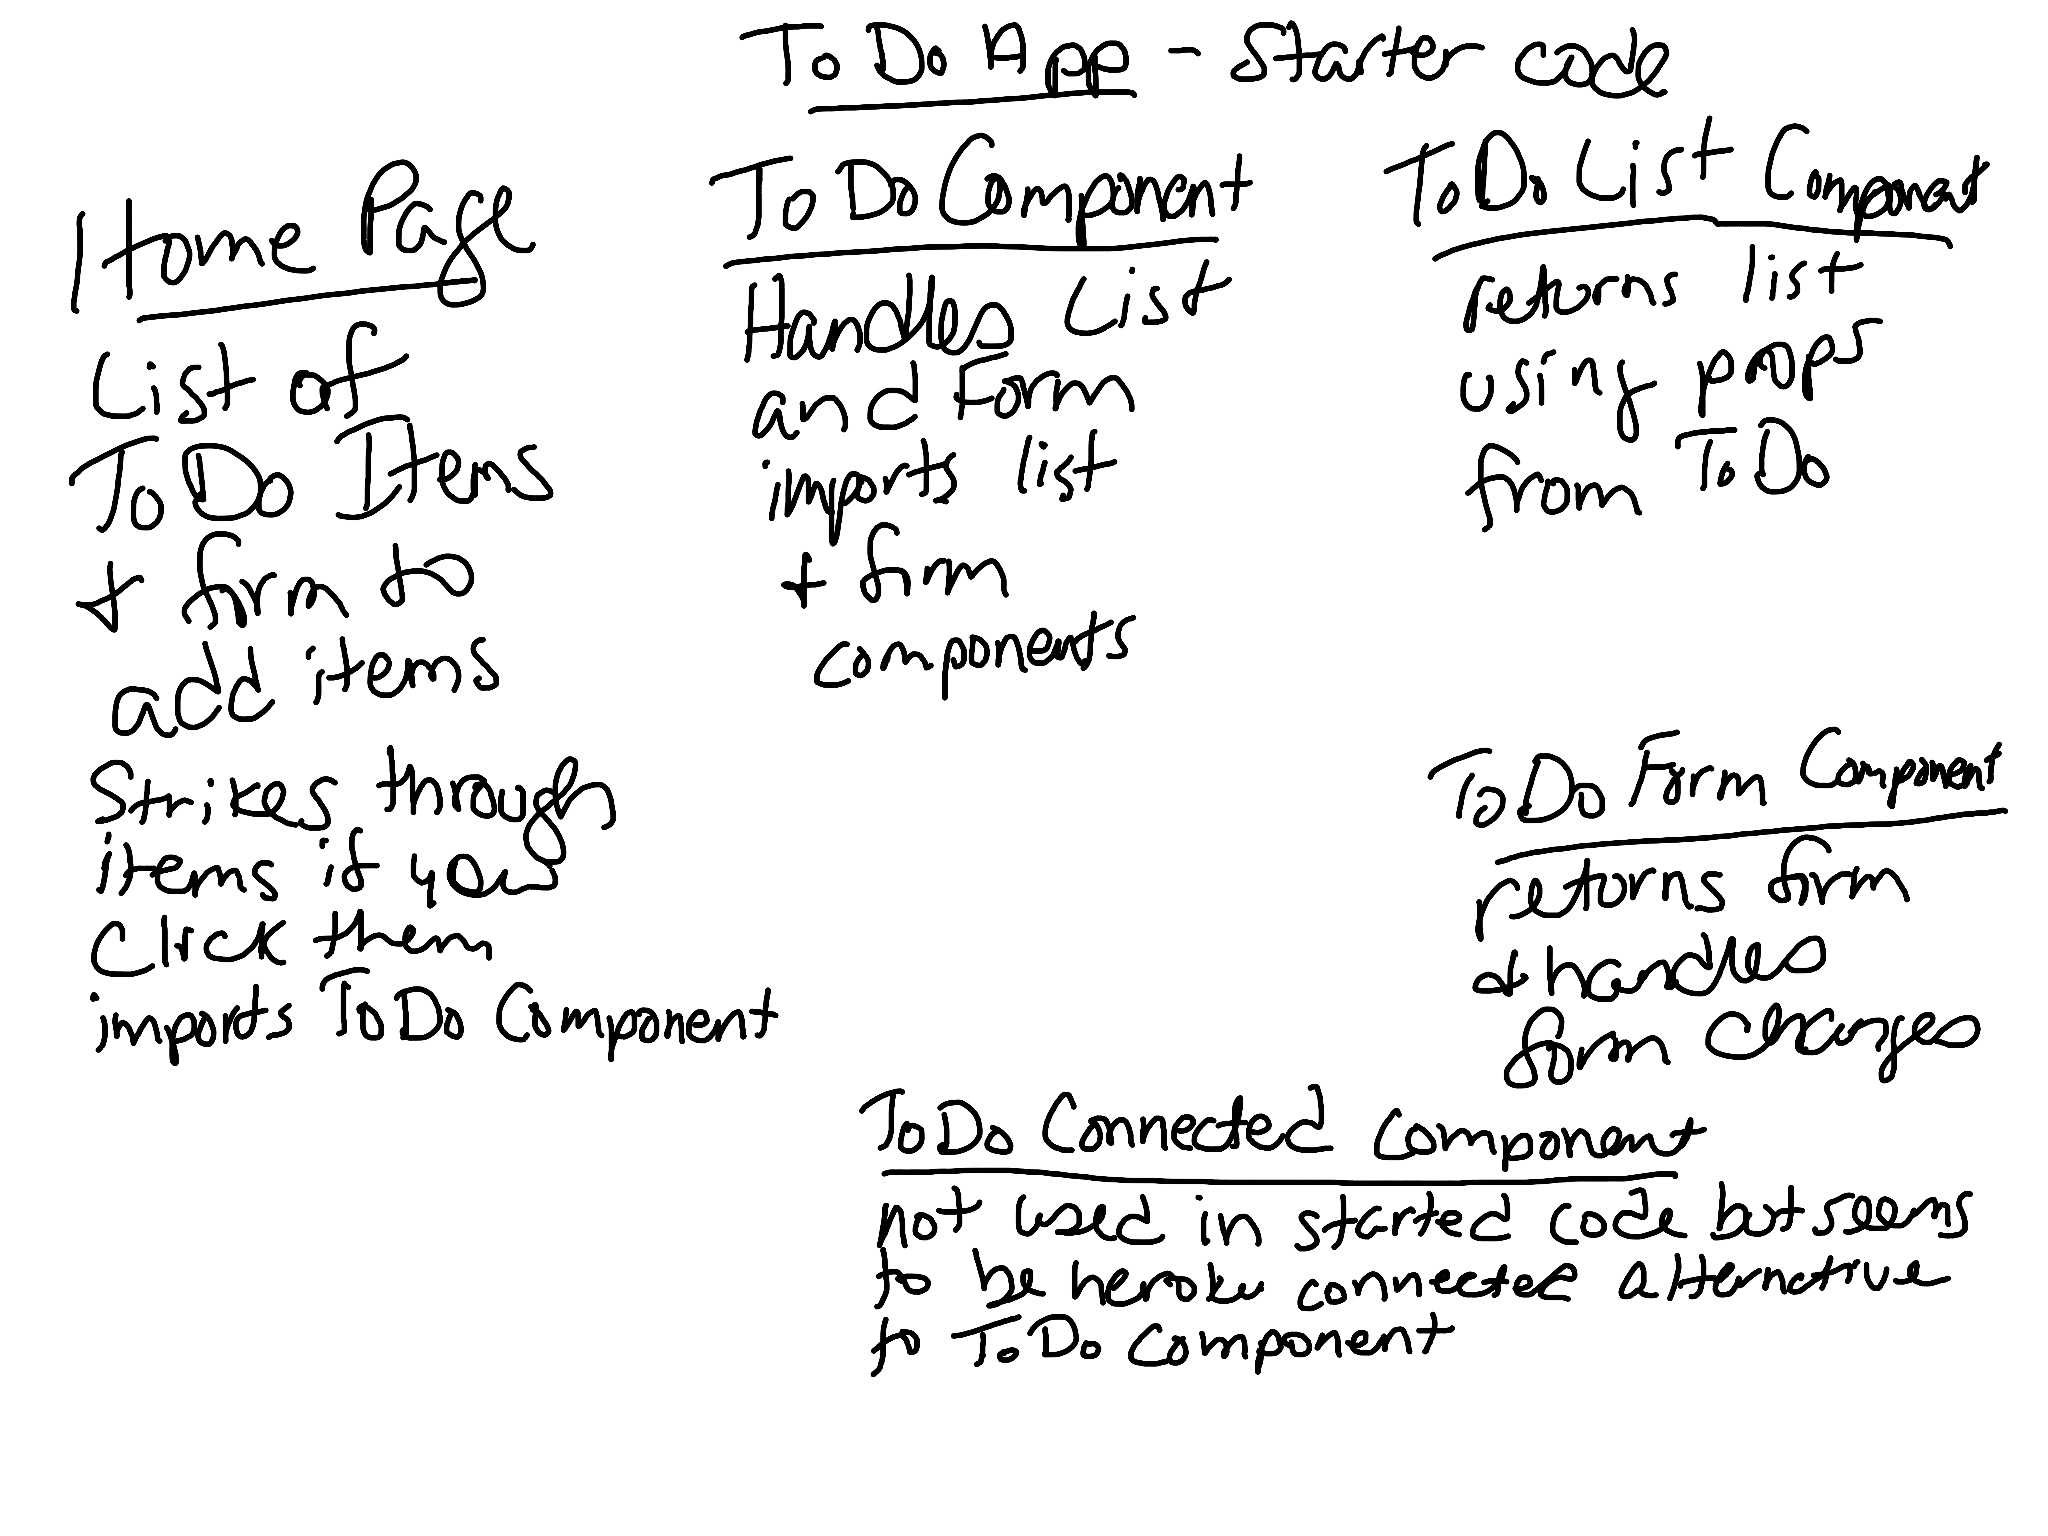 To Do App - Starter code
Home Page
List of
To Do Items
+ form to
add items
Strikes through
items if you
click them
imports ToDo Component
To Do Component
Handles List
and Form
imports list
+ form
components
ToDo List Component
returns list
using props
from ToDo
ToDo Form Component
returns form
+ handles
form changes
ToDo Connected Component
not used in started code but seems
to be heroku connected alternative
to ToDo Component